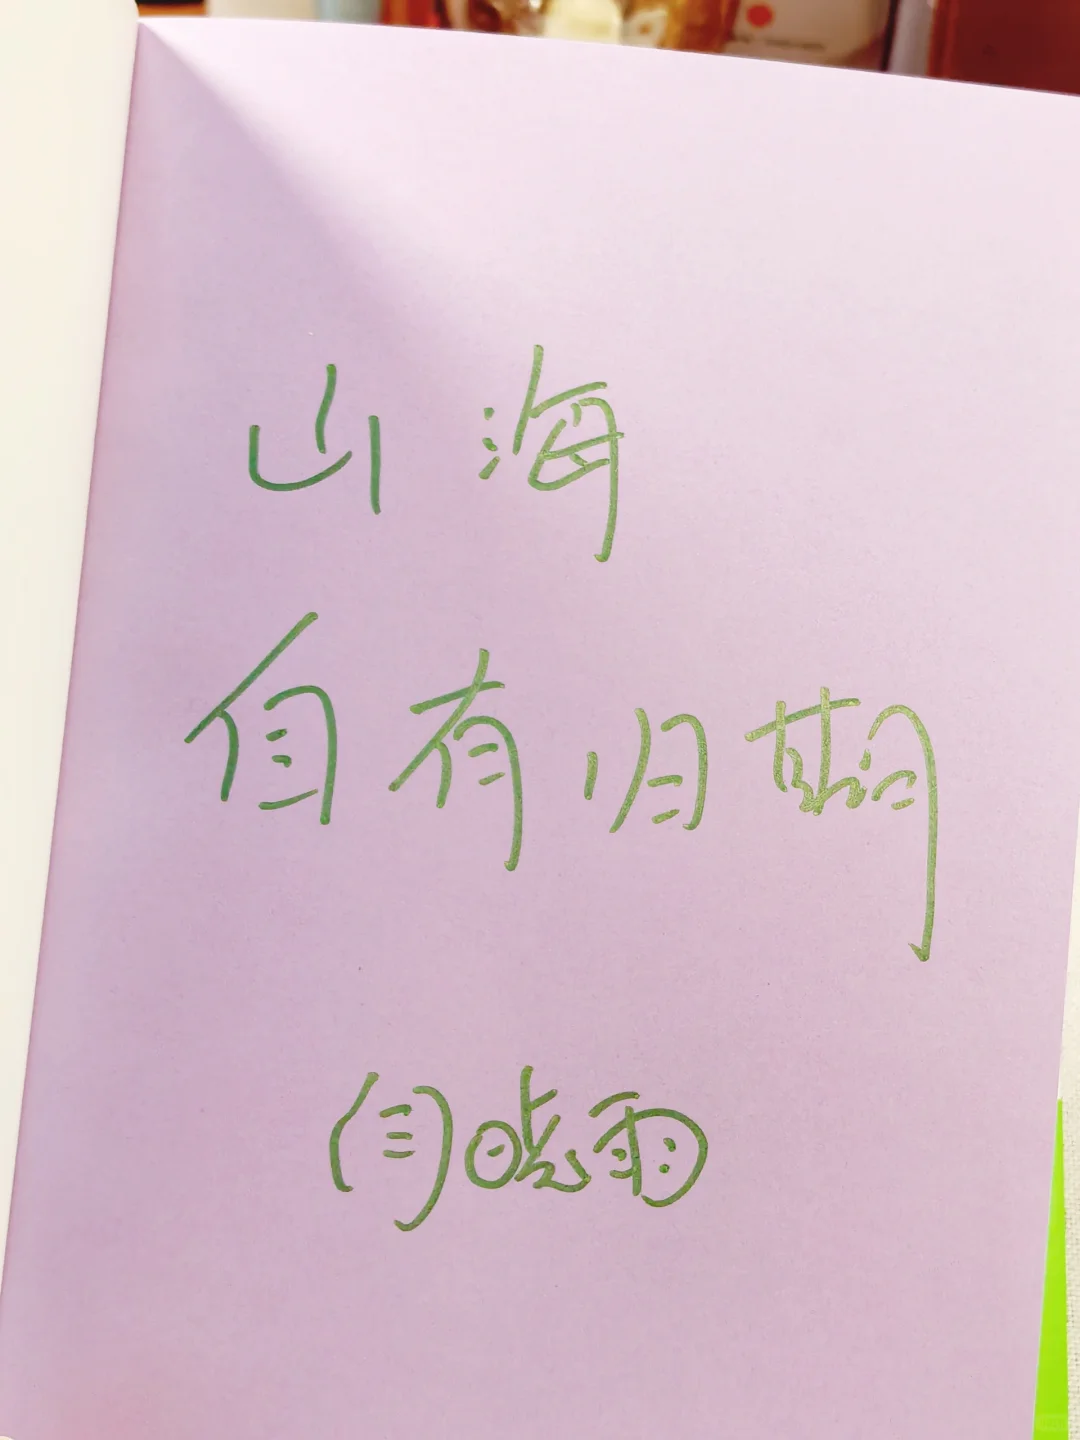 山海
自有归期
闫晓雨